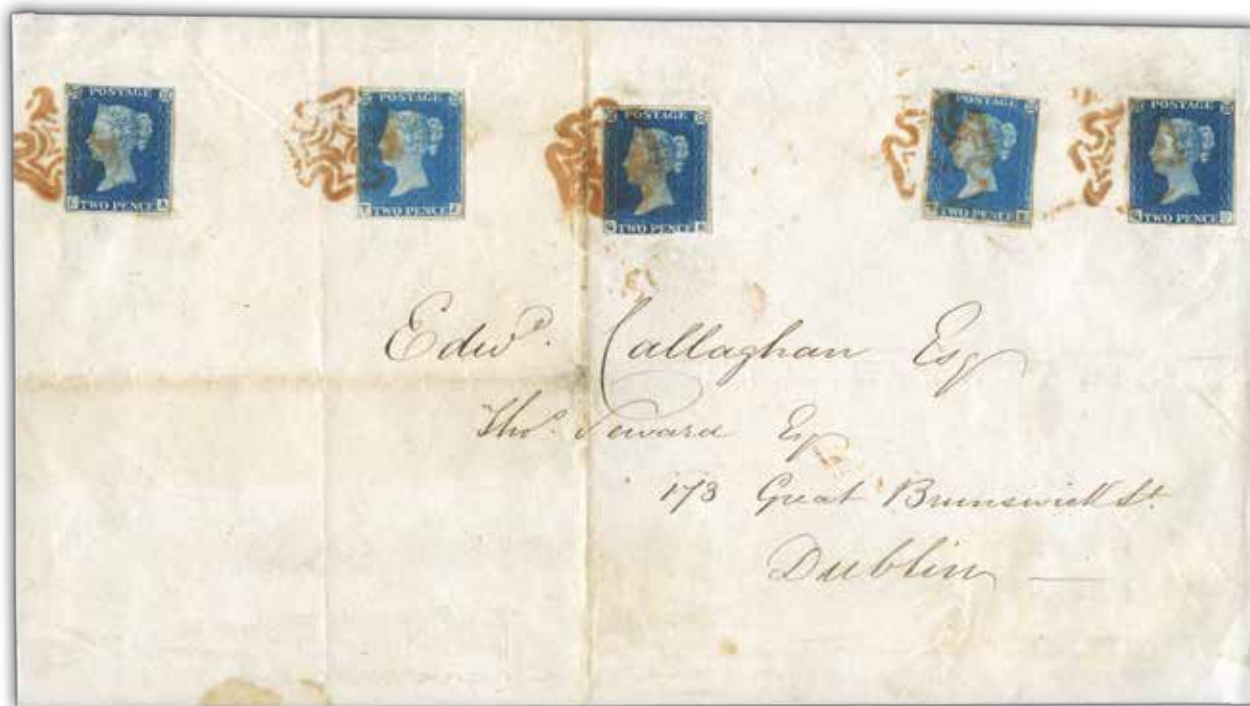 POSTAGE POSTAGE POSTAGE POSTAGE POSTAGE
TWO PENCE A TWO PENCE TWO PENCE TWO PENCE TWO PENCE
Edwd. Callaghan Esq
Thos. Seward Esq
173 Great Brunswick St.
Dublin